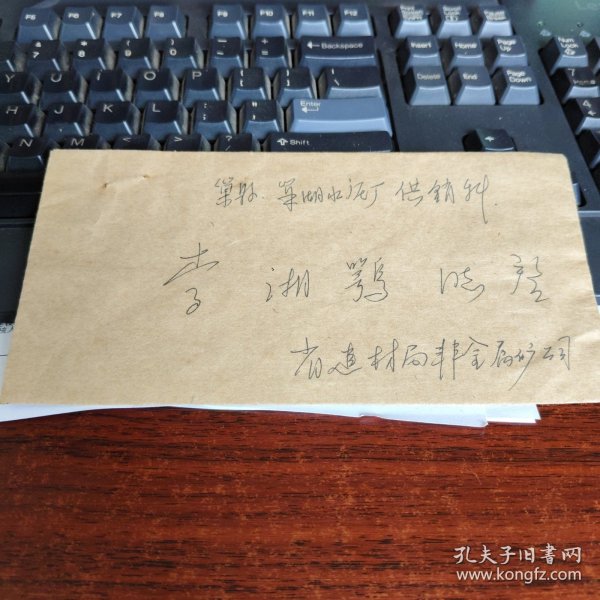 F5
F6
F7
F8
F9
F10
F11
F12
Backspace
Insert
Home
Page Up
Num Lock
Y
U
I
O
P
Delete
End
Page Down
H
J
K
L
Enter
N
M
Shift
巢县.巢湖水泥厂供销科.
李湘鹗 啟
省建材局非金属矿公司
孔夫子旧书网
www.kongfz.com